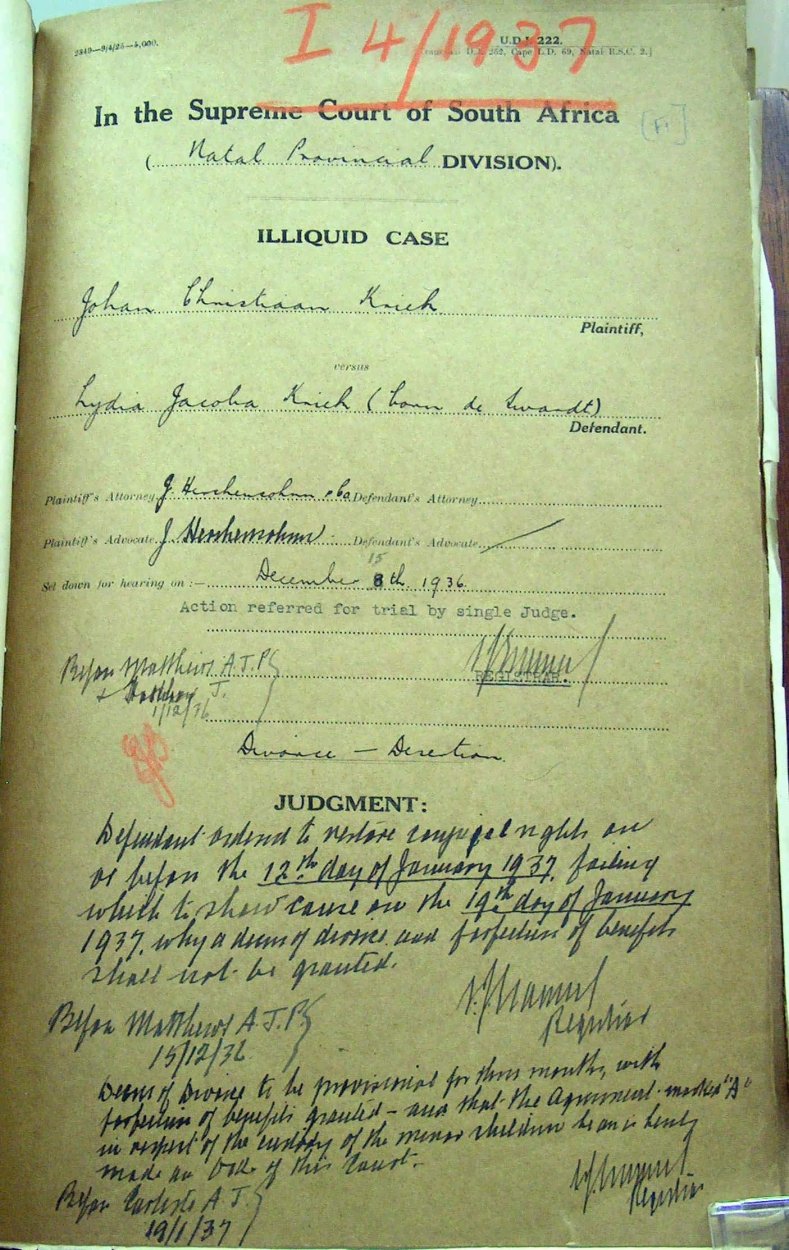 I 4/1937
2349—9/4/25—5,000.
U.D.J. 222.
D.J. 252, Cape L.D. 69, Natal R.S.C. 2.]
In the Supreme Court of South Africa
(Natal Provincial DIVISION).
ILLIQUID CASE
Johan Christiaan Kriek
Plaintiff,
versus
Lydia Jacoba Kriek (born de Swardt)
Defendant.
Plaintiff's Attorney J. Hershensohnn & Co Defendant's Attorney
Plaintiff's Advocate J Hershensohnn Defendant's Advocate
15
Set down for hearing on :— December 8th 1936
Action referred for trial by single Judge.
Before Matthews A.J.P.
& J.
1/12/36
REGISTRAR.
Divorce — Desertion.
JUDGMENT:
Defendant ordered to restore conjugal rights on
or before the 12th day of January 1937, failing
which to show cause on the 19th day of January
1937, why a decree of divorce and forfeiture of benefits
shall not be granted.
Before Matthews A.J.P.
15/12/36
Registrar
Decree of Divorce to be provisional for three months, with
forfeiture of benefits granted – and that the Agreement marked "A"
in respect of the custody of the minor children be and is hereby
made an Order of this Court.
Before Carlisle A.J.
19/1/37
Registrar